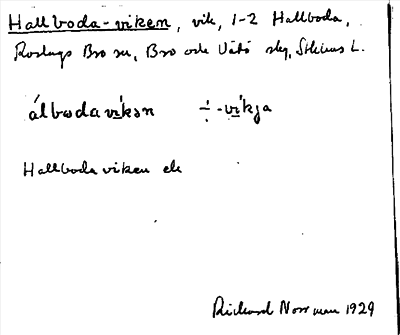 Hallboda-viken, vik, 1-2 Hallboda,
Roslags Bro sn, Bro och Vätö skg, Sthlms L.
álbodavíkən ÷ -víkja
Hallbodaviken ek
Rickard Norrman 1929